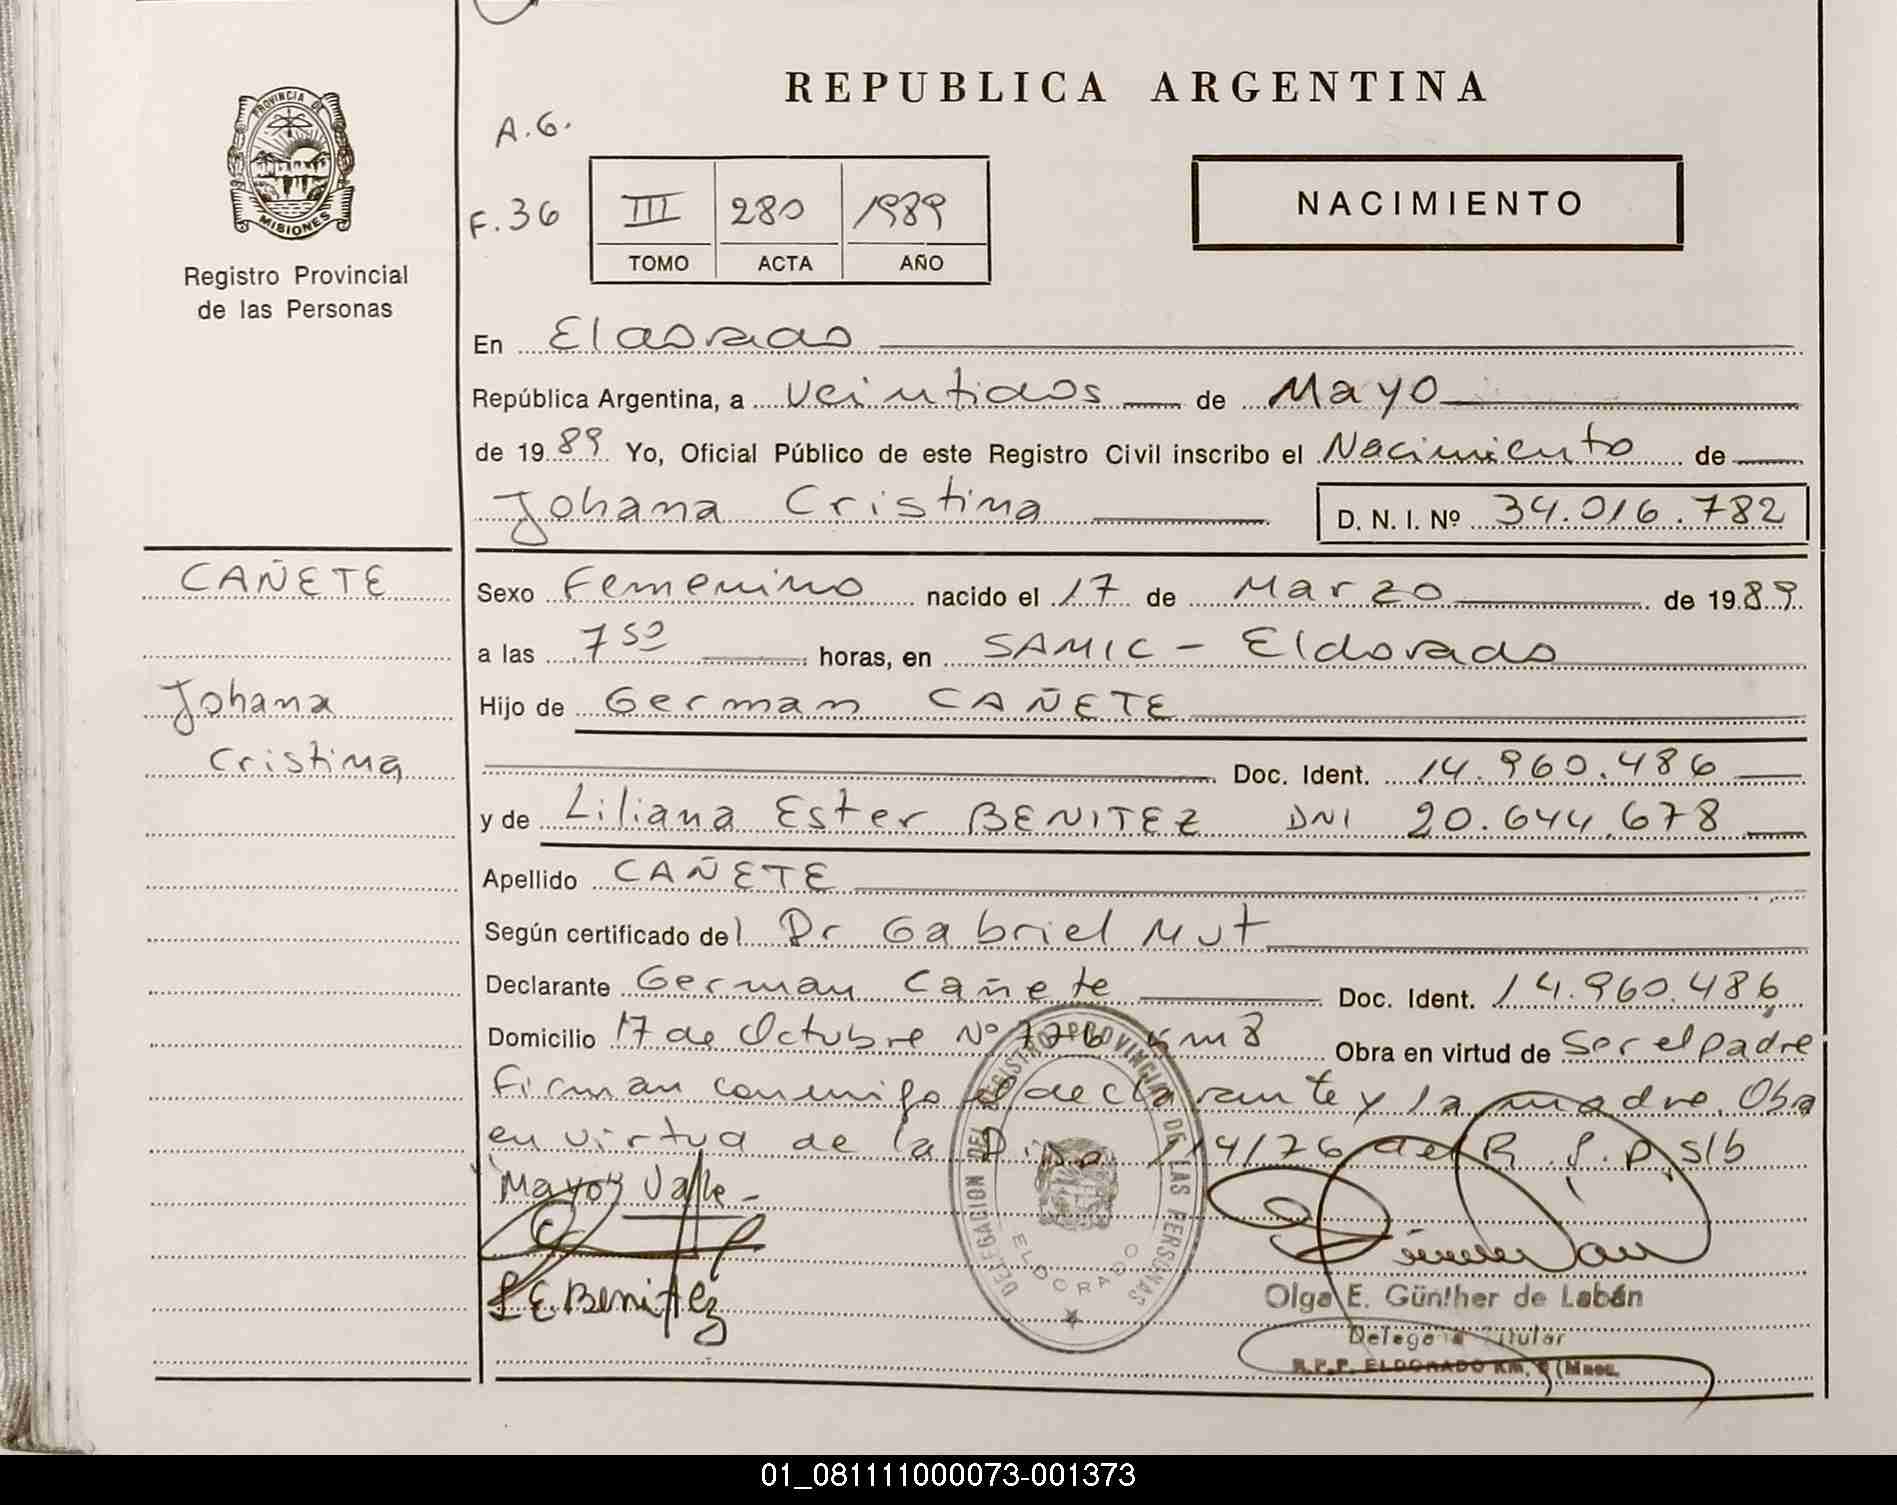 REPUBLICA ARGENTINA
PROVINCIA DE
MISIONES
Registro Provincial
de las Personas
A.G.
F.36
III 280 1989
TOMO ACTA AÑO
NACIMIENTO
En Eldorado
República Argentina, a veintidos de Mayo
de 1989 Yo, Oficial Público de este Registro Civil inscribo el Nacimiento de
Johana Cristina D. N. I. Nº 34.016.782
CAÑETE
Johana
Cristina
Sexo Femenino nacido el 17 de Marzo de 1989
a las 7 50 horas, en SAMIC - Eldorado
Hijo de German CAÑETE
Doc. Ident. 14.960.486
y de Liliana Ester BENITEZ DNI 20.644.678
Apellido CAÑETE
Según certificado del Dr Gabriel Mut
Declarante German Cañete Doc. Ident. 14.960.486
Domicilio 17 de Octubre Nº 776 km 8 Obra en virtud de Ser el padre
Firman conmigo el declarante y la madre. Oba
en virtud de la Disp 114/76 del R.P.P. s/b
"Mayo y Valle -
L E. Benitez
DELEGACION DEL REGISTRO PROVINCIAL DE LAS PERSONAS
ELDORADO
Olga E. Günther de Labán
Delegada Titular
R.P.P. ELDORADO KM. (Mnes.
01_081111000073-001373